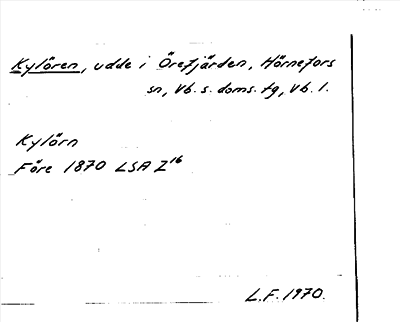 Kylören, udde i Örefjärden, Hörnefors
sn, Vb. s. doms. tg, Vb. l.
Kylörn
Före 1870 LSA Z16
L.F. 1970.